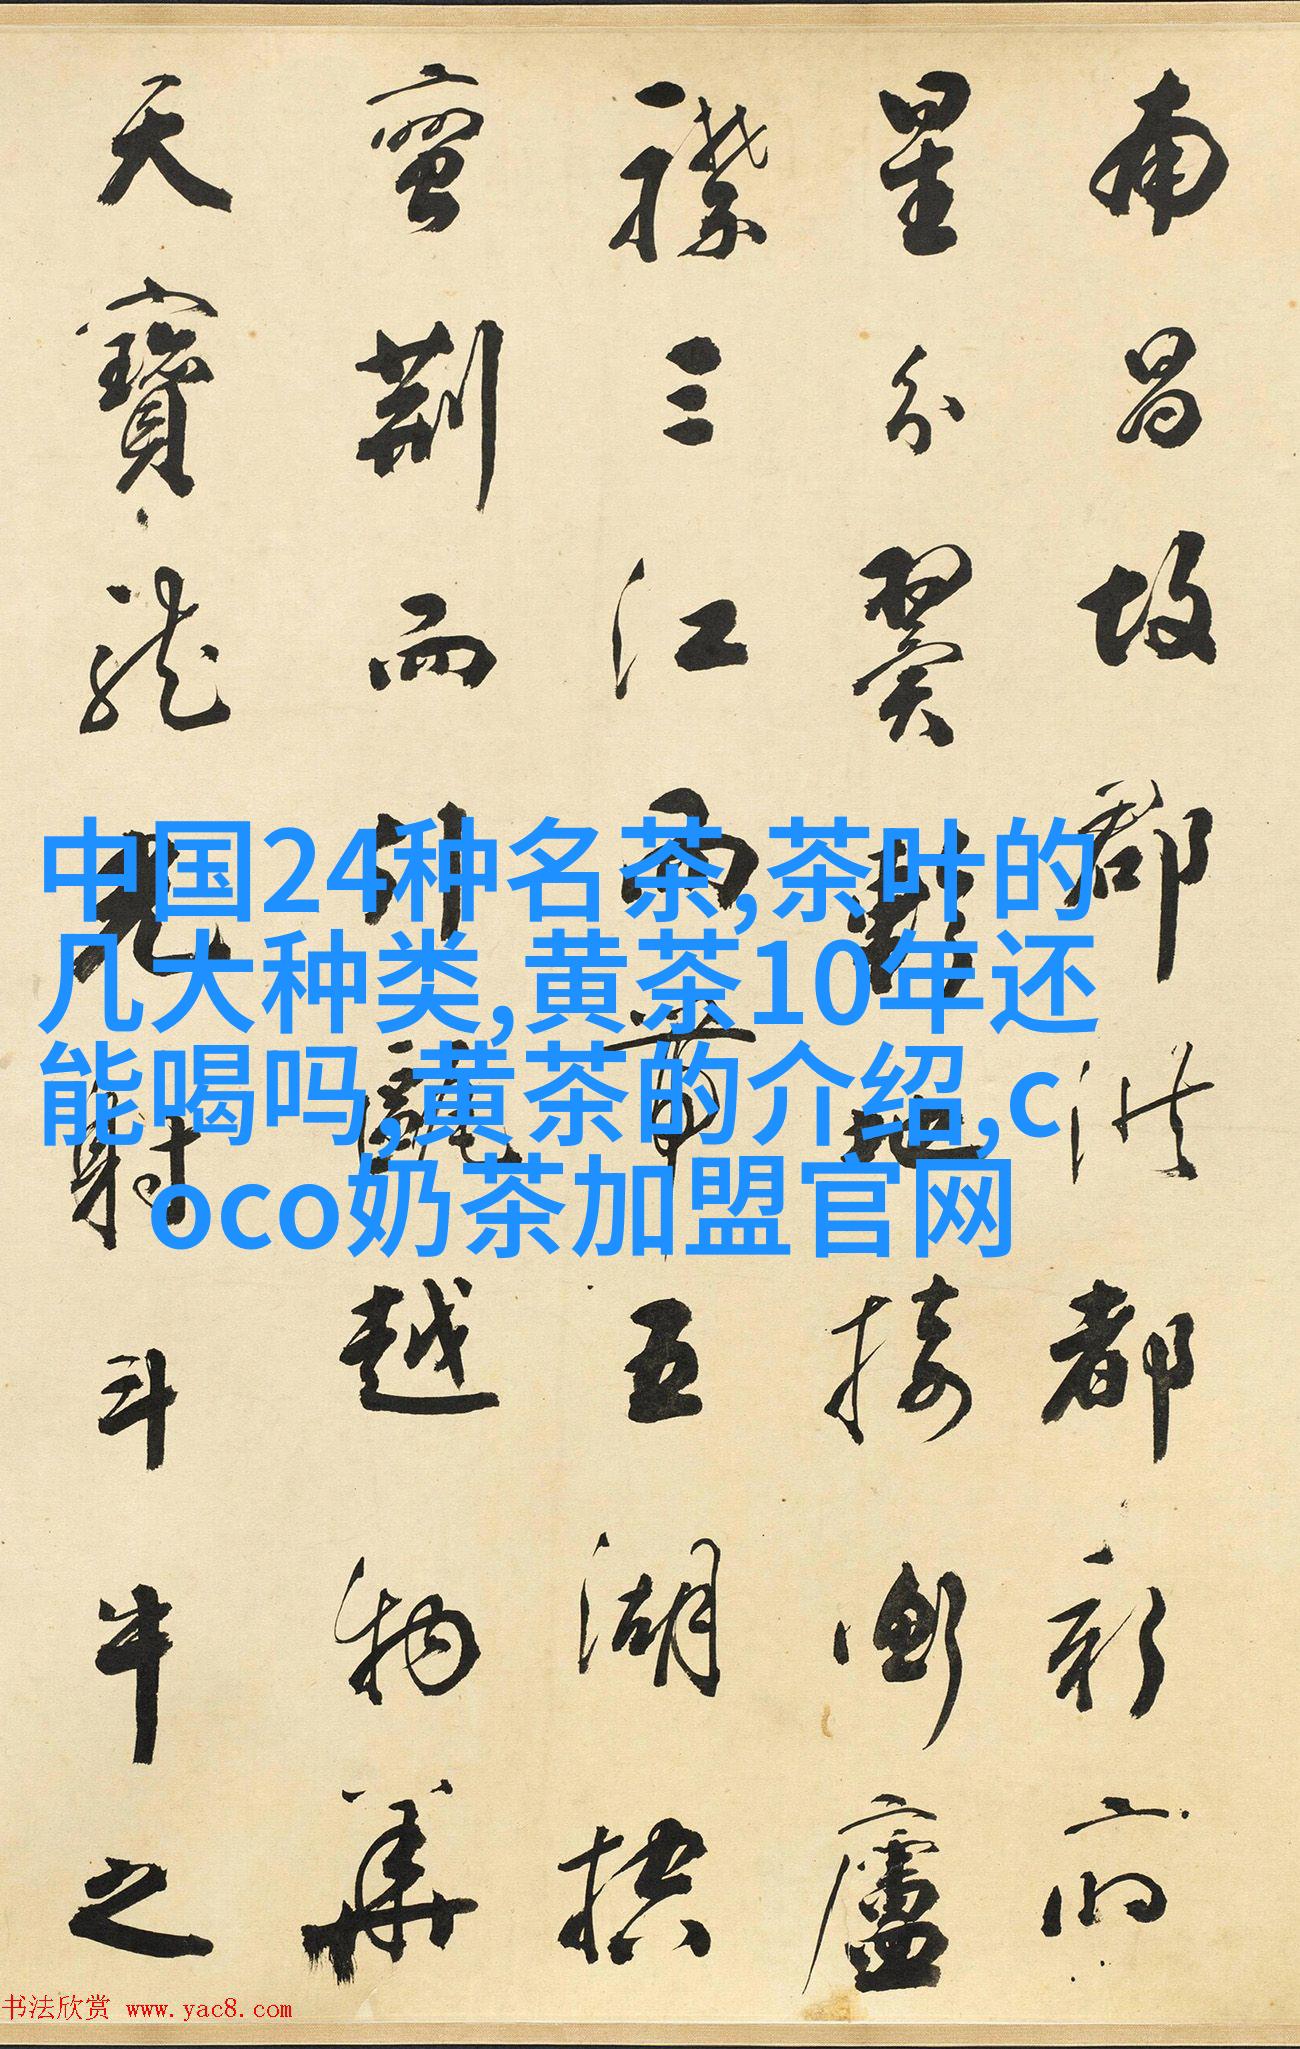 南昌故郡洪都新府
星分翼軫地接衡廬
襟三江而帶五湖控
蠻荊而引甌越物華
天寶龍光射斗牛之
中国24种名茶,茶叶的
几大种类,黄茶10年还
能喝吗,黄茶的介绍,c
oco奶茶加盟官网
书法欣赏 www.yac8.com